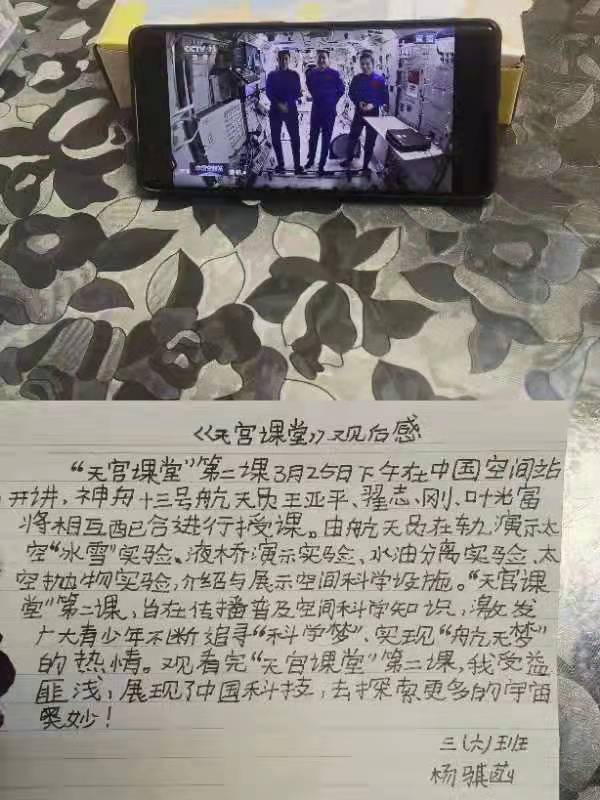 CCTV 13
《天宫课堂》观后感
“天宫课堂”第二课3月25日下午在中国空间站
开讲，神舟十三号航天员王亚平、翟志、刚、叶光富
将相互配合进行授课。由航天员在轨演示太
空“冰雪”实验、液桥演示实验、水油分离实验、太
空抛物实验，介绍与展示空间科学设施。“天宫课
堂”第二课，旨在传播普及空间科学知识，激发
广大青少年不断追寻“科学梦”、实现“航天梦”
的热情。观看完“天宫课堂”第二课，我受益
匪浅，展现了中国科技，去探索更多的宇宙
奥妙！
三（六）班
杨骐菡